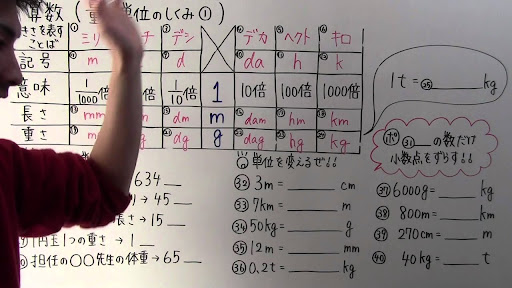 算数（重 単位のしくみ①）
きさを表す ことば ① ミリ チ ③ デシ ④ デカ ⑤ ヘクト ⑥ キロ
記号 m d da h k
意味 1/1000倍 倍 1/10倍 1 10倍 100倍 1000倍
長さ mm m dm m dam hm km
重さ mg dg g dag hg kg
1t=㉕______kg
㉛__の数だけ
小数点をずらす!!
単位を変えるぜ!!
634__
→45__
長さ→15__
1円玉1つの重さ→1__
担任の〇〇先生の体重→65__
㉜ 3m=______cm
㉝ 7km=______m
㉞ 50kg=______g
㉟ 12m=______mm
㊱ 0.2t=______kg
㊲ 6000g=______kg
㊳ 800m=______km
㊴ 270cm=______m
㊵ 40kg=______t